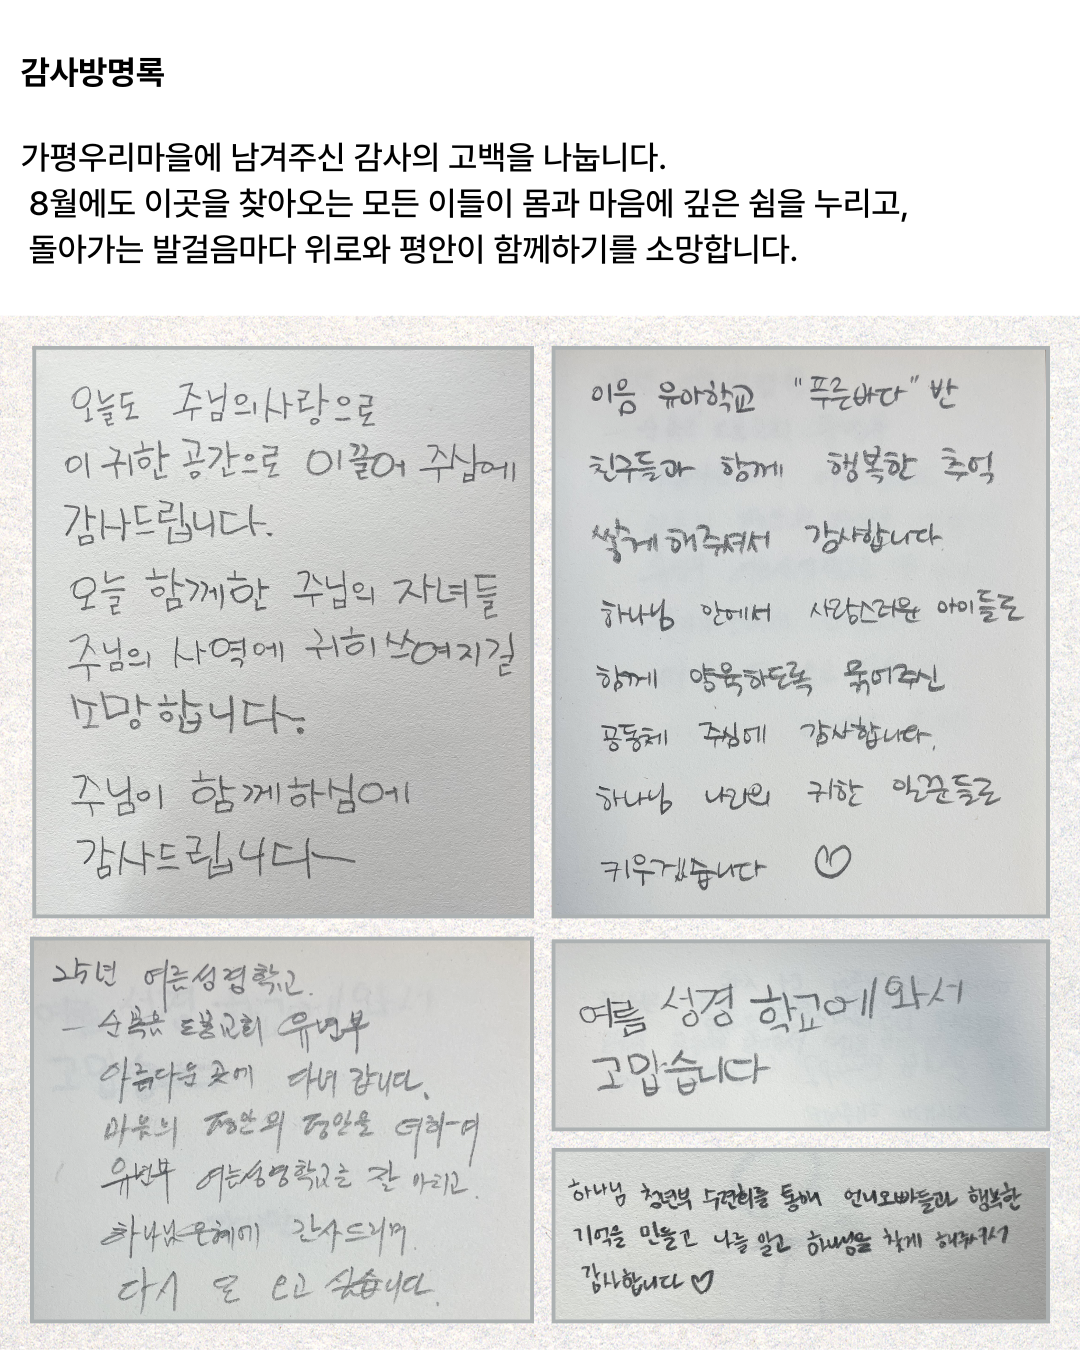 감사방명록
가평우리마을에 남겨주신 감사의 고백을 나눕니다.
8월에도 이곳을 찾아오는 모든 이들이 몸과 마음에 깊은 쉼을 누리고,
돌아가는 발걸음마다 위로와 평안이 함께하기를 소망합니다.
오늘도 주님의사랑으로
이 귀한 공간으로 이끌어 주심에
감사드립니다.
오늘 함께한 주님의 자녀들
주님의 사역에 귀히 쓰여지길
소망합니다.
주님이 함께하심에
감사드립니다
이음 유아학교 "푸른바다" 반
친구들과 함께 행복한 추억
쌓게 해주셔서 감사합니다
하나님 안에서 사랑스러운 아이들로
함께 양육하도록 묶어주신
공동체 주심에 감사합니다.
하나님 나라의 귀한 일꾼들로
키우겠습니다 ♡
25년 여름성경학교.
- 순복음 도봉교회 유년부
아름다운 곳에 다녀 갑니다.
마음의 평안을
유년부 여름성경학교를 잘 마치고.
하나님은혜에 감사드리며
다시 또 오고 싶습니다.
여름 성경 학교에 와서
고맙습니다
하나님 청년부 수련회를 통해 언니오빠들과 행복한
기억을 만들고 나를 알고 하나님을 찾게 해줘서
감사합니다 ♡